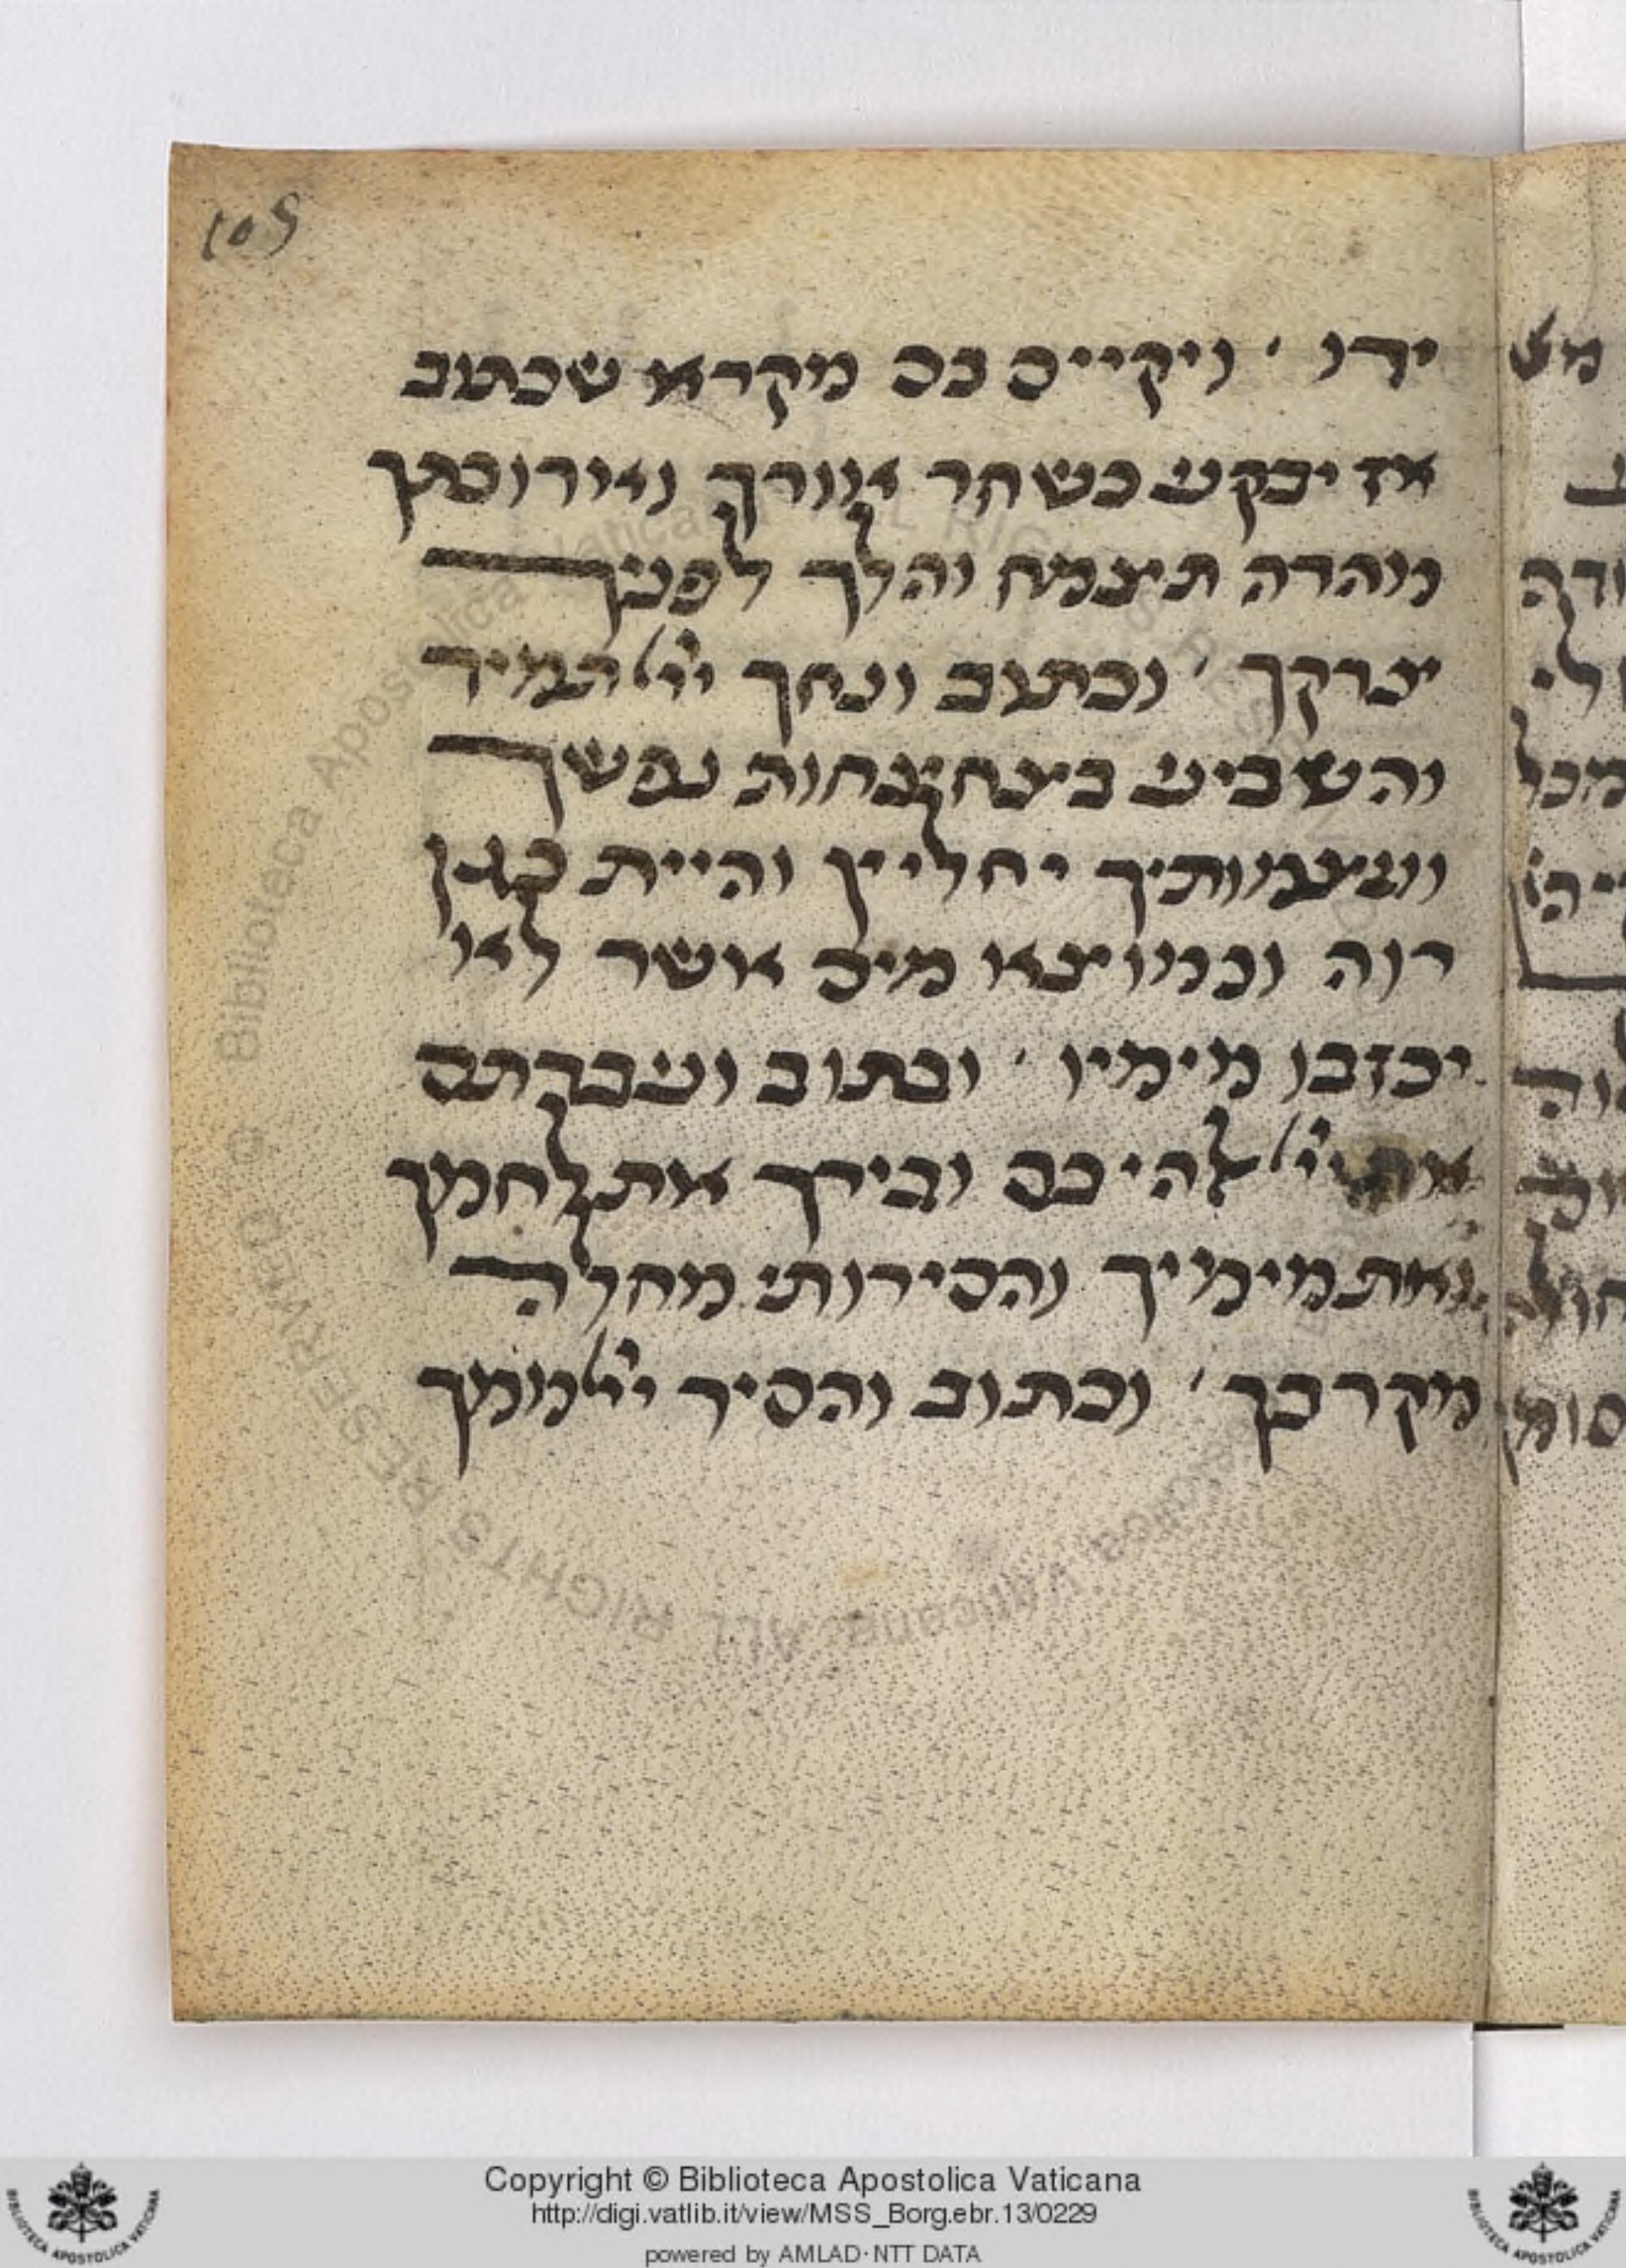 105
ידו ׳ ויקיים בם מקרא שכתוב
אז יבקע כשחר אורך וארוכתך
מהרה תצמח והלך לפניך
צדקך ׳ וכתוב ונחך ייי תמיד
והשביע בצחצחות נפשך
ועצמותיך יחליץ והיית כגן
רוה וכמוצא מים אשר לא
יכזבו מימיו ׳ וכתוב ועבדתם
את ייי אלהיכם וביריך את לחמך
ואת מימיך והסירותי מחלה
מקרבך ׳ וכתוב והסיר ייי ממך
Copyright © Biblioteca Apostolica Vaticana
http://digi.vatlib.it/view/MSS_Borg.ebr.13/0229
powered by AMLAD·NTT DATA